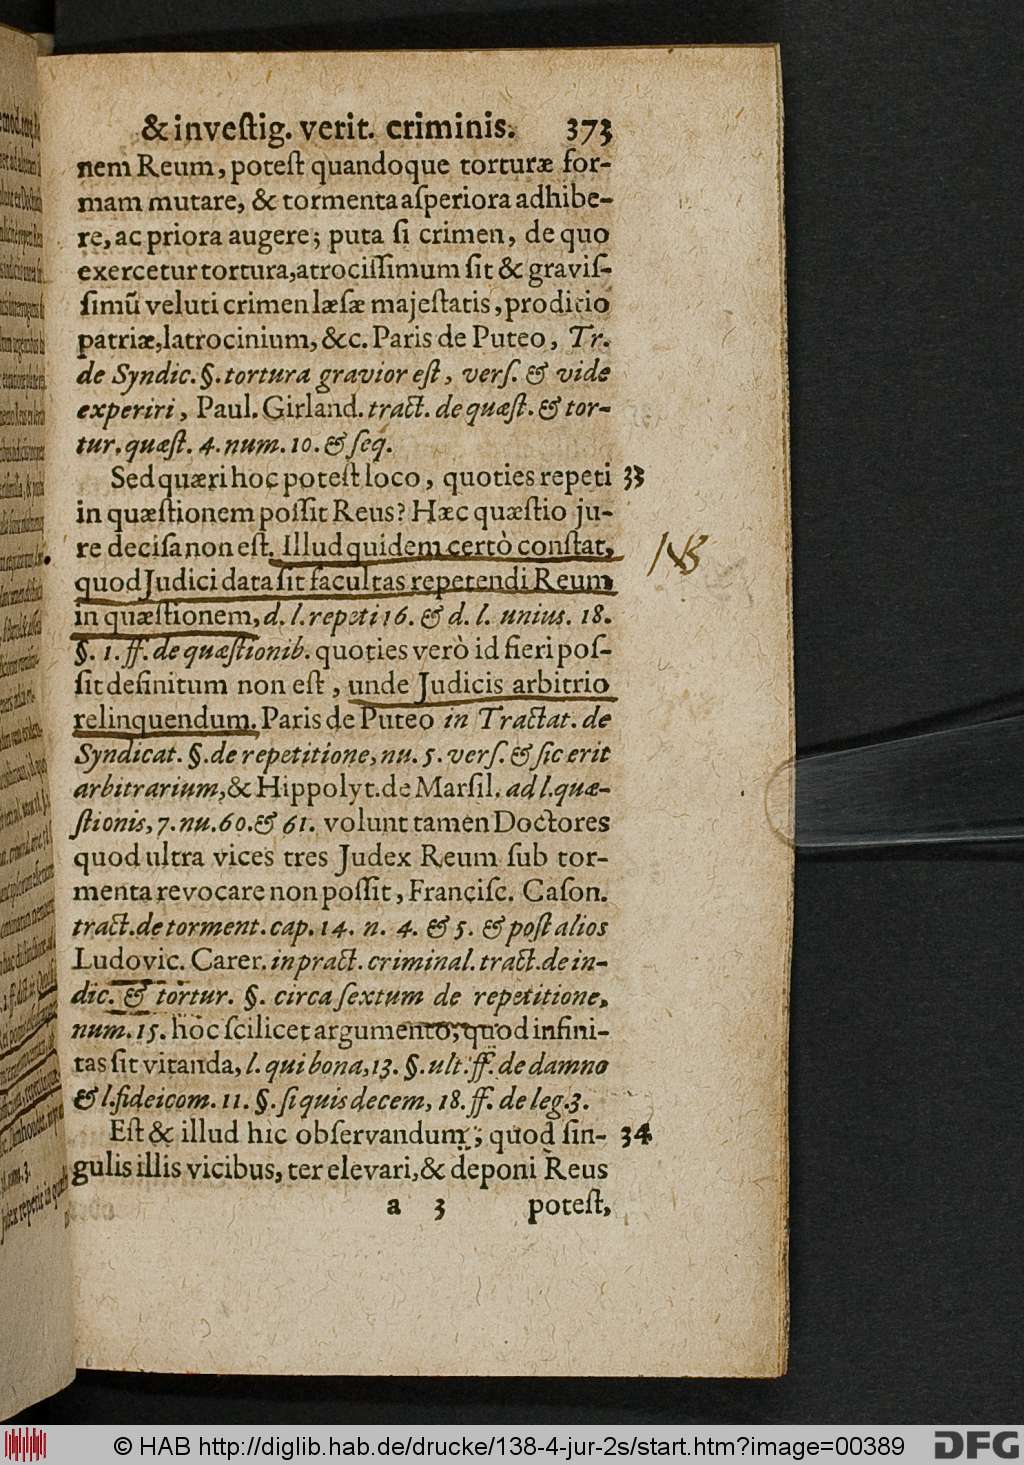 & inveſtig. verit. criminis. 373
nem Reum, poteſt quandoque torturæ for-
mam mutare, & tormenta aſperiora adhibe-
re, ac priora augere; puta ſi crimen, de quo
exercetur tortura, atrociſſimum ſit & graviſ-
ſimũ veluti crimen læſæ majeſtatis, proditio
patriæ, latrocinium, &c. Paris de Puteo, Tr.
de Syndic. §. tortura gravior eſt, verſ. & vide
experiri, Paul. Girland. tract. de quæſt. & tor-
tur. quæſt. 4. num. 10. & ſeq.
Sed quæri hoc poteſt loco, quoties repeti 33
in quæſtionem poſſit Reus? Hæc quæſtio ju-
re deciſa non eſt. Illud quidem certò conſtat, NB
quod Judici data ſit facultas repetendi Reum
in quæſtionem, d. l. repeti 16. & d. l. unius. 18.
§. 1. ff. de quæſtionib. quoties verò id fieri poſ-
ſit definitum non eſt, unde Judicis arbitrio
relinquendum. Paris de Puteo in Tractat. de
Syndicat. §. de repetitione, nu. 5. verſ. & ſic erit
arbitrarium, & Hippolyt. de Marſil. ad l. quæ-
ſtionis, 7. nu. 60. & 61. volunt tamen Doctores
quod ultra vices tres Judex Reum ſub tor-
menta revocare non poſſit, Franciſc. Caſon.
tract. de torment. cap. 14. n. 4. & 5. & poſt alios
Ludovic. Carer. in pract. criminal. tract. de in-
dic. & tortur. §. circa ſextum de repetitione,
num. 15. hoc ſcilicet argumento, quod infini-
tas ſit vitanda, l. qui bona, 13. §. ult. ff. de damno
& l. fideicom. 11. §. ſi quis decem, 18. ff. de leg. 3.
Eſt & illud hic obſervandum; quod ſin- 34
gulis illis vicibus, ter elevari, & deponi Reus
a 3 poteſt,
© HAB http://diglib.hab.de/drucke/138-4-jur-2s/start.htm?image=00389 DFG